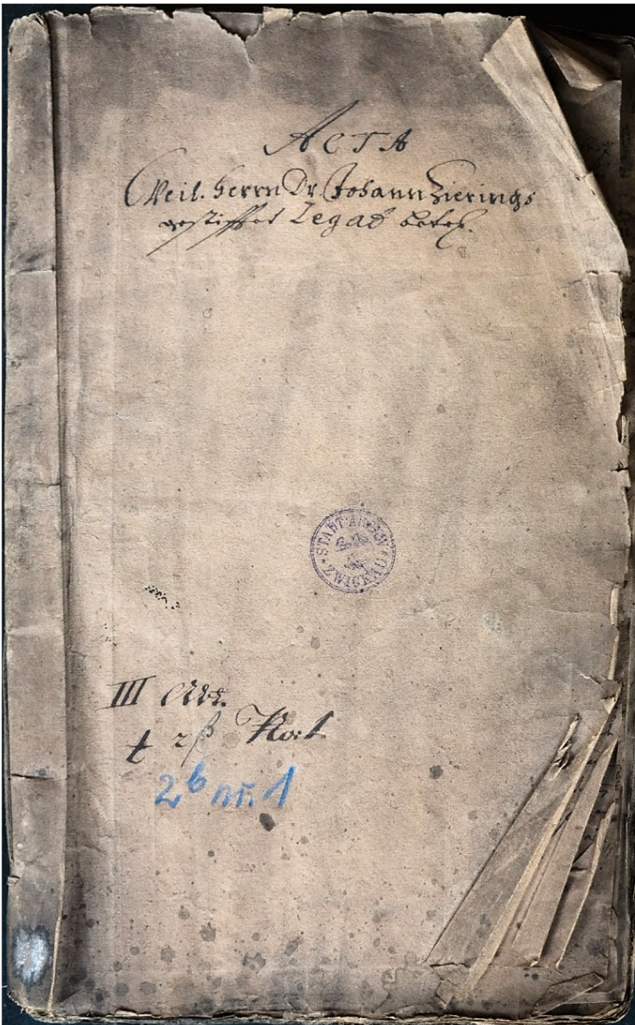 ACTA
Weil. Herrn Dr. Johann Zierings
gestifftes Legat betr.
STADTARCHIV
III Abt.
t
2b nr. 1